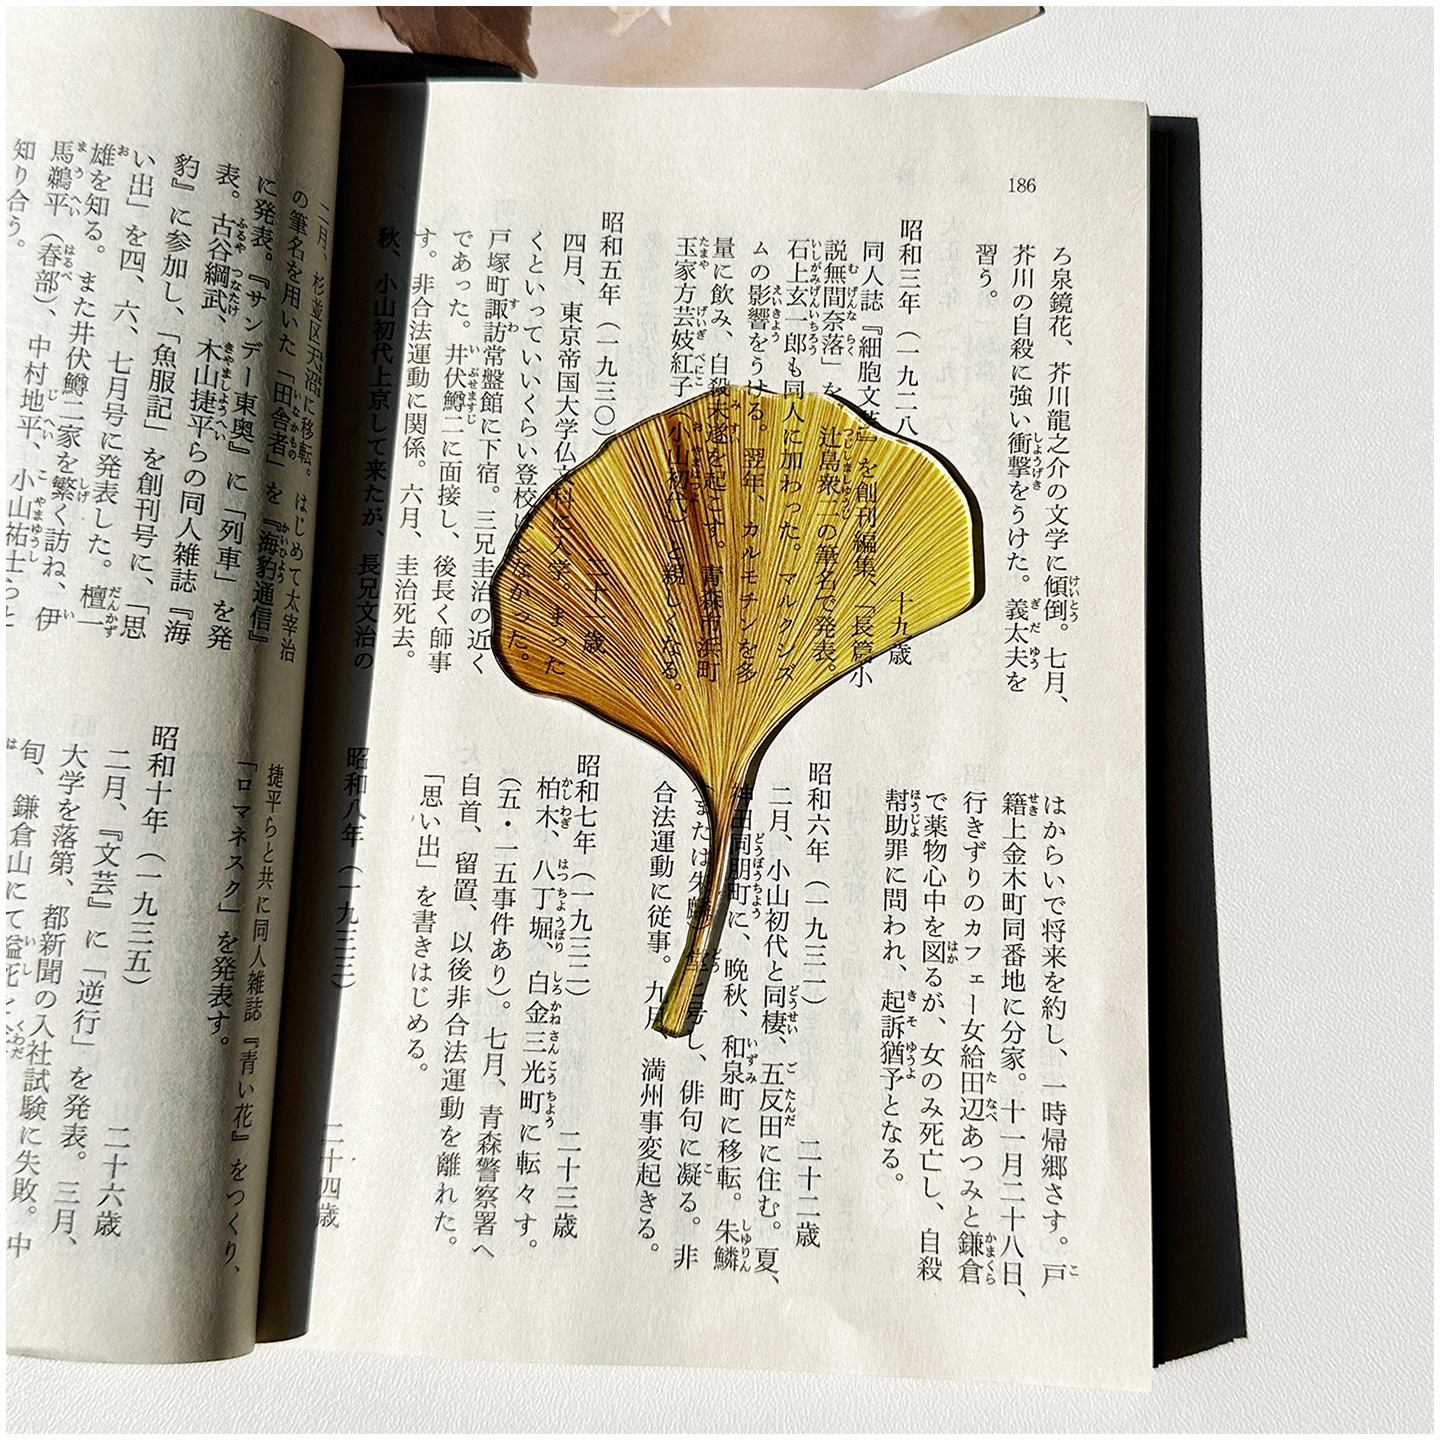 186
ろ泉鏡花、芥川龍之介の文学に傾倒。七月、
芥川の自殺に強い衝撃をうけた。義太夫を
習う。
昭和三年(一九二八 十九歳
同人誌『細胞文芸』を創刊編集、「長篇小
説無間奈落」を 辻島衆二の筆名で発表。
石上玄一郎も同人に加わった。マルクシズ
ムの影響をうける。翌年、カルモチンを多
量に飲み、自殺未遂を起こす。青森市浜町
玉家方芸妓紅子(小山初代)と親しくなる。
昭和五年(一九三〇) 二十一歳
四月、東京帝国大学仏文科に入学。まった
くといっていいくらい登校はしなかった。
戸塚町諏訪常盤館に下宿。三兄圭治の近く
であった。井伏鱒二に面接し、後長く師事
す。非合法運動に関係。六月、圭治死去。
秋、小山初代上京して来たが、長兄文治の
はからいで将来を約し、一時帰郷さす。戸
籍上金木町同番地に分家。十一月二十八日、
行きずりのカフェー女給田辺あつみと鎌倉
で薬物心中を図るが、女のみ死亡し、自殺
幇助罪に問われ、起訴猶予となる。
昭和六年(一九三一) 二十二歳
二月、小山初代と同棲、五反田に住む。夏、
神田同朋町に、晩秋、和泉町に移転。朱鱗
し、俳句に凝る。非
合法運動に従事。九月 満州事変起きる。
昭和七年(一九三二) 二十三歳
柏木、八丁堀、白金三光町に転々す。
(五・一五事件あり)。七月、青森警察署へ
自首、留置、以後非合法運動を離れた。
「思い出」を書きはじめる。
昭和八年(一九三三) 二十四歳
二月、杉並区天沼に移転。はじめて太宰治
の筆名を用いた「田舎者」を『海豹通信』
に発表。『サンデー東奥』に「列車」を発
表。古谷綱武、木山捷平らの同人雑誌『海
豹』に参加し、「魚服記」を創刊号に、「思
い出」を四、六、七月号に発表した。檀一
雄を知る。また井伏鱒二家を繁く訪ね、伊
馬鵜平(春部)、中村地平、小山祐士らと
知り合う。
捷平らと共に同人雑誌『青い花』をつくり、
「ロマネスク」を発表す。
昭和十年(一九三五) 二十六歳
二月、『文芸』に「逆行」を発表。三月、
大学を落第、都新聞の入社試験に失敗。中
旬、鎌倉山にて縊死を